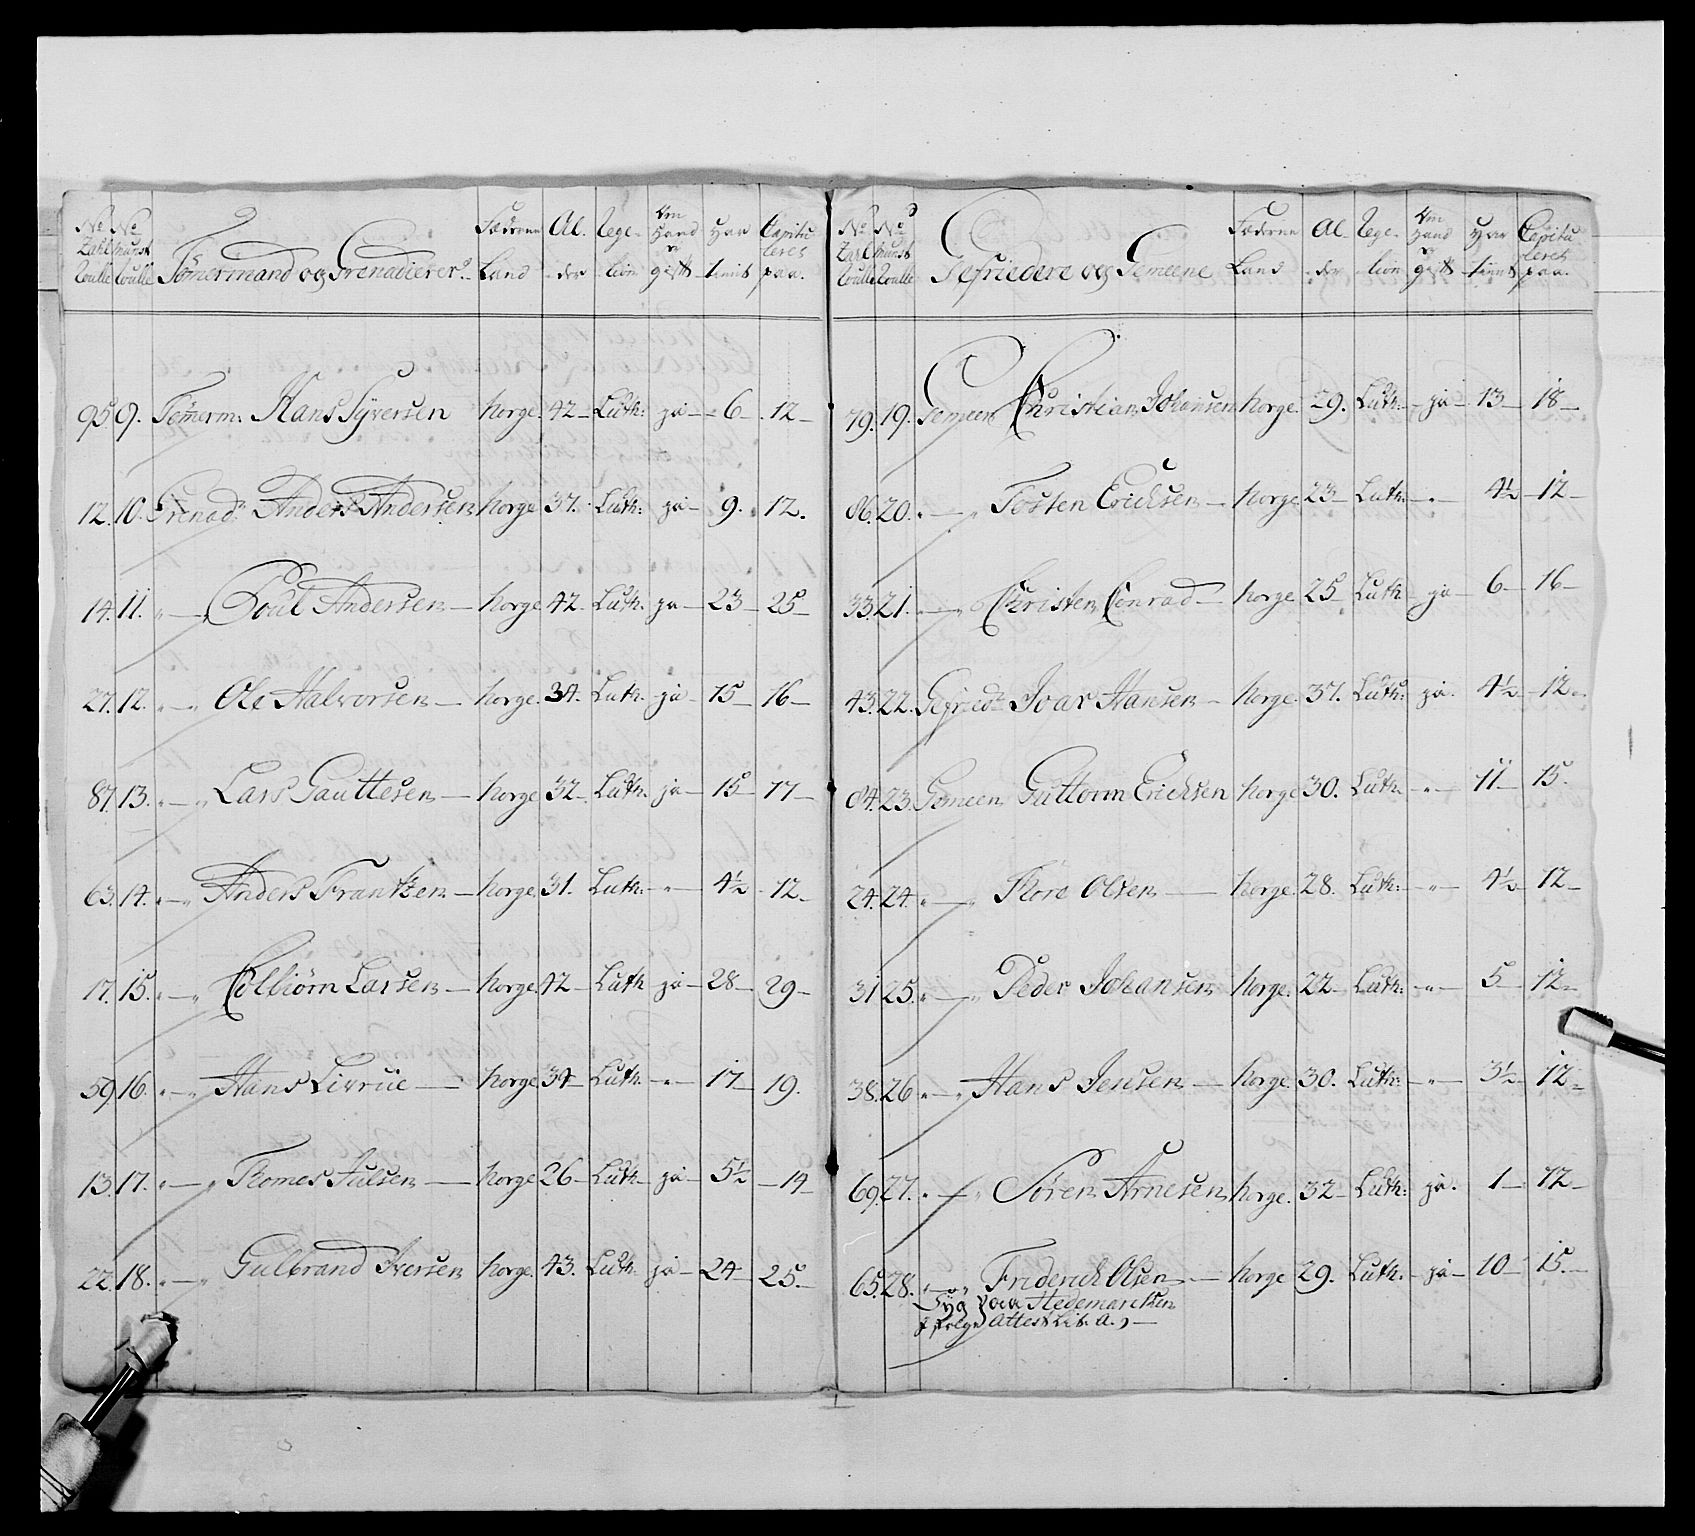 No Zahl Roulle | No Munst Roulle | Tömermand og Grenadierer | Fæderne Land | Al-der | Rege-lion | Om Hand gestt | Har tient | Capitu leret paa.
95. 9. Tömerm: Hans Syversen Norge. 42 Luth: ja 6 12
12. 10. Grenad: Anders Andersen Norge 37. Luth: ja 9. 12.
14. 11. " Poul Andersen Norge 42 Luth. ja 23 25
27. 12. " Ole Halvorsen Norge. 34 Luth. ja 15 16
87. 13. " Lars Gauttesen Norge 32 Luth. ja 15 17
63. 14. " Anders Frantzen Norge. 31. Luth: " 4½ 12
17. 15. " Colbiörn Larsen Norge. 42 Luth ja 28 29
59. 16. " Hans Levrüe Norge 34 Luth " 17 19.
13. 17. " Tomes Julsen Norge 26 Luth ja 5½ 14
22. 18. " Gulbrand Iversen Norge. 43. Luth. ja 24 25.
No Zahl Roulle | No Munst Roulle | Gefriedere og Gemeene | Fæderne Land | Al-der | Rege-lion | Om Hand gestt | Har tient | Capitu leret paa.
79. 19. Gemeen Christian Johansen Norge. 29. Luth: ja 13 18
86. 20. " Tosten Ericksen Norge 23 Luth: " 4½ 12
33. 21. " Christen Conrad Norge 25 Luth ja 6 16
43. 22. Gefriedr Ivar Hansen Norge. 37. Luth: ja. 4½ 12
84. 23. Gemeen Guttorm Ericksen Norge 30. Luth. " 11 15.
24. 24. " Tore Olsen Norge. 28. Luth: " 4½ 12
31. 25. " Peder Johansen Norge. 22 Luth: " 5 12
38. 26 " Hans Jensen Norge. 30. Luth: " 3½ 12
69. 27. " Sören Arnesen Norge. 32 Luth: ja. 1 12
65. 28. " Friderich Olsen Norge 29. Luth. ja 10 15.
Syg paa Hedemarcken
f folge Attest Lit: A.,